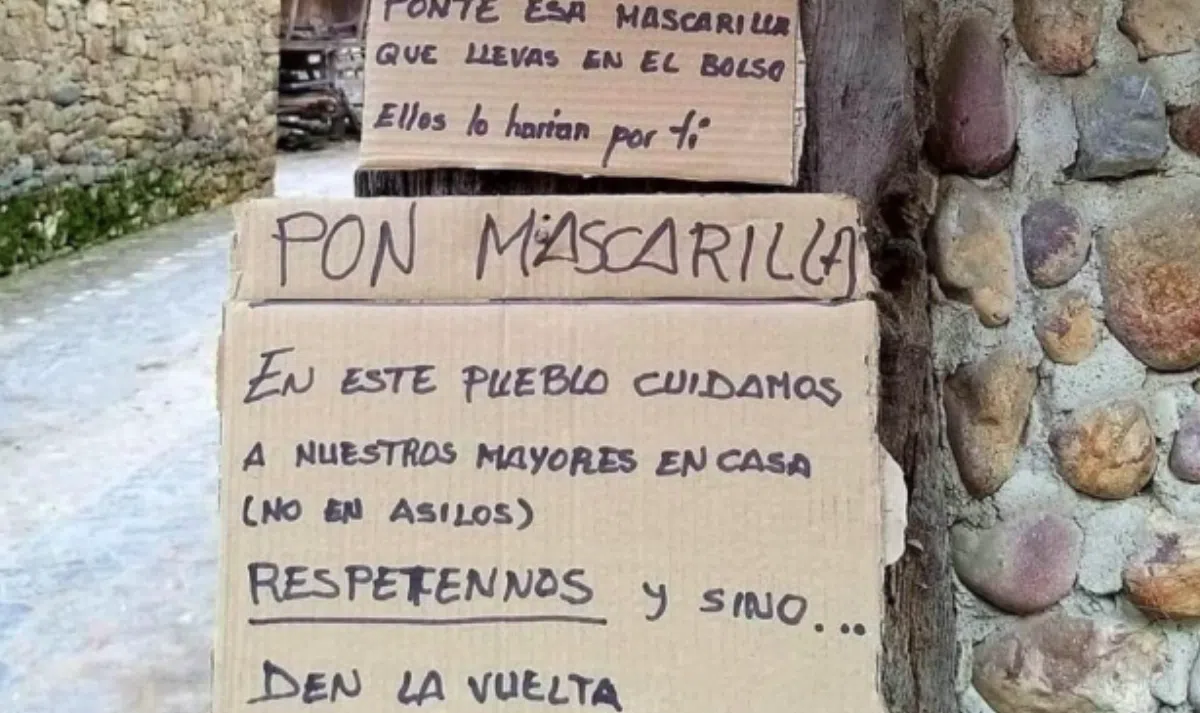 PONTE ESA MASCARILLA
QUE LLEVAS EN EL BOLSO
Ellos lo harian por ti
PON MASCARILLA
EN ESTE PUEBLO CUIDAMOS
A NUESTROS MAYORES EN CASA
(NO EN ASILOS)
RESPETENNOS Y SINO...
DEN LA VUELTA